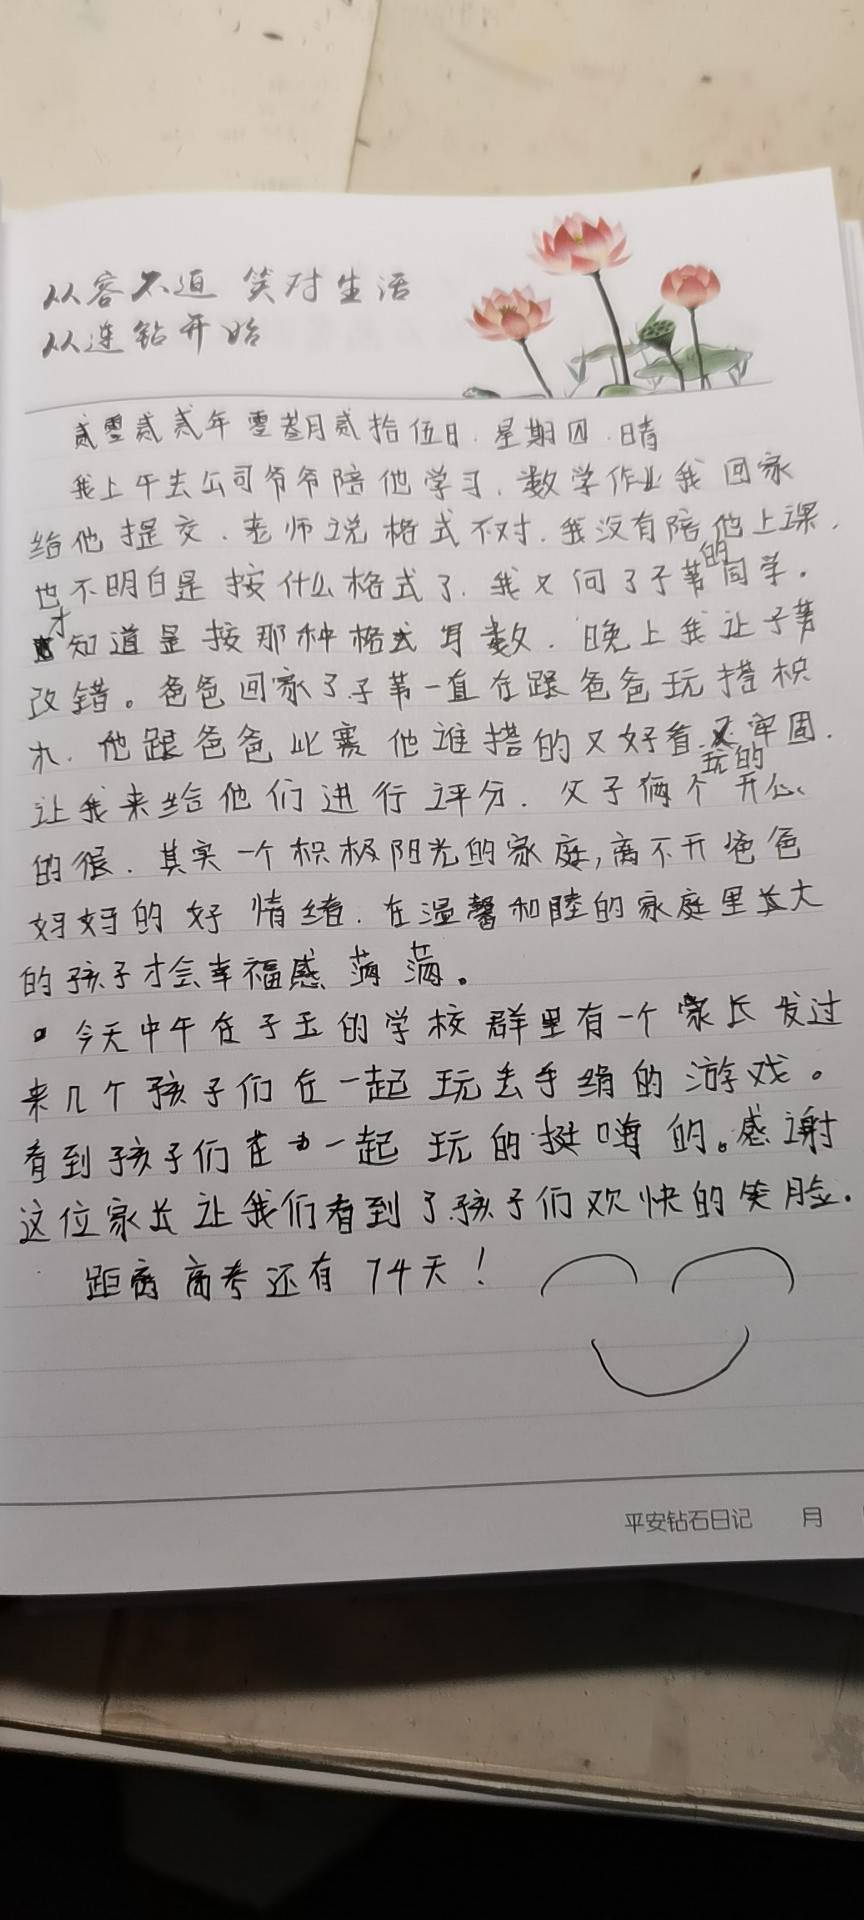 从容不迫 笑对生活
从连钻开始
贰零贰贰年零叁月贰拾伍日.星期四.晴
我上午去公司爷爷陪他学习.数学作业我回家
给他提交.老师说格式不对.我没有陪他上课.
也不明白是按什么格式了.我又问了子苇的同学.
才知道是按那种格式写数.晚上我让子苇
改错。爸爸回家了.子苇一直在跟爸爸玩搭积
木.他跟爸爸比赛他谁搭的又好看又牢固.
让我来给他们进行评分.父子俩个玩的开心
的很.其实一个积极阳光的家庭,离不开爸爸
妈妈的好情绪.在温馨和睦的家庭里长大
的孩子才会幸福感满满。
今天中午在子玉的学校群里有一个家长发过
来几个孩子们在一起玩丢手绢的游戏。
看到孩子们在一起玩的挺嗨的。感谢
这位家长让我们看到了孩子们欢快的笑脸.
距离高考还有74天!
平安钻石日记 月